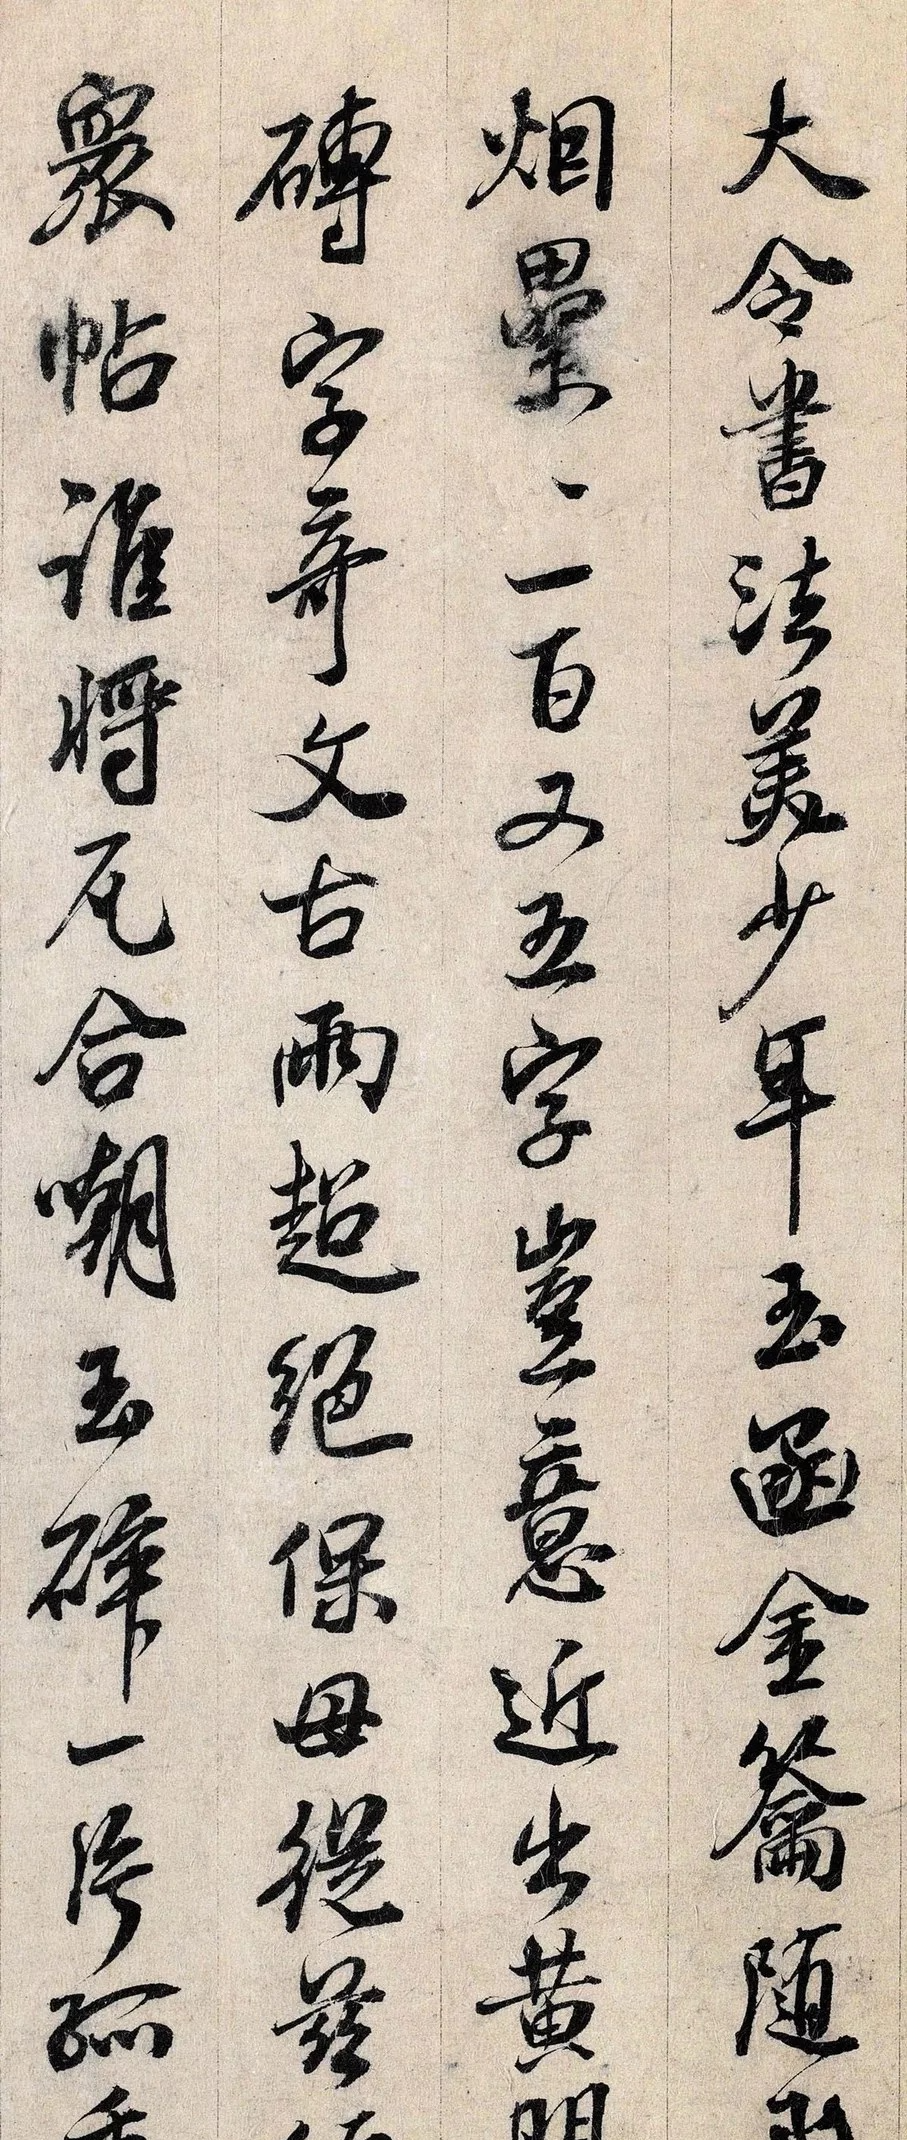 大令書法美少年玉函金籥随
烟壘〻一百又五字豈意近出黄閍
磚字奇文古兩超絕保母從茲
衆帖誰將瓦合嘲玉碎一片孤